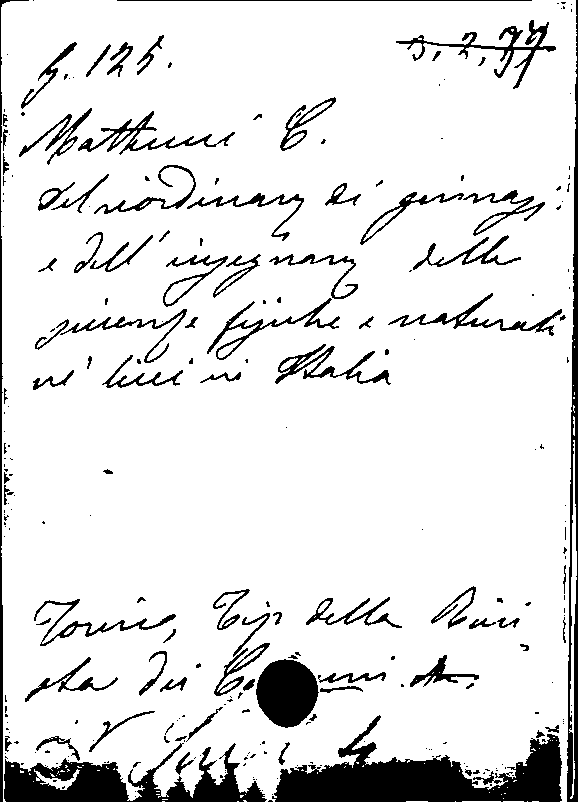 G. 125.
3. 2. 37
Matteucci C.
Del riordinam dei ginnasj
e dell' insegnam delle
scienze fisiche e naturali
ne' licei in Italia
Torino, Tip della Rivi
sta dei Comuni